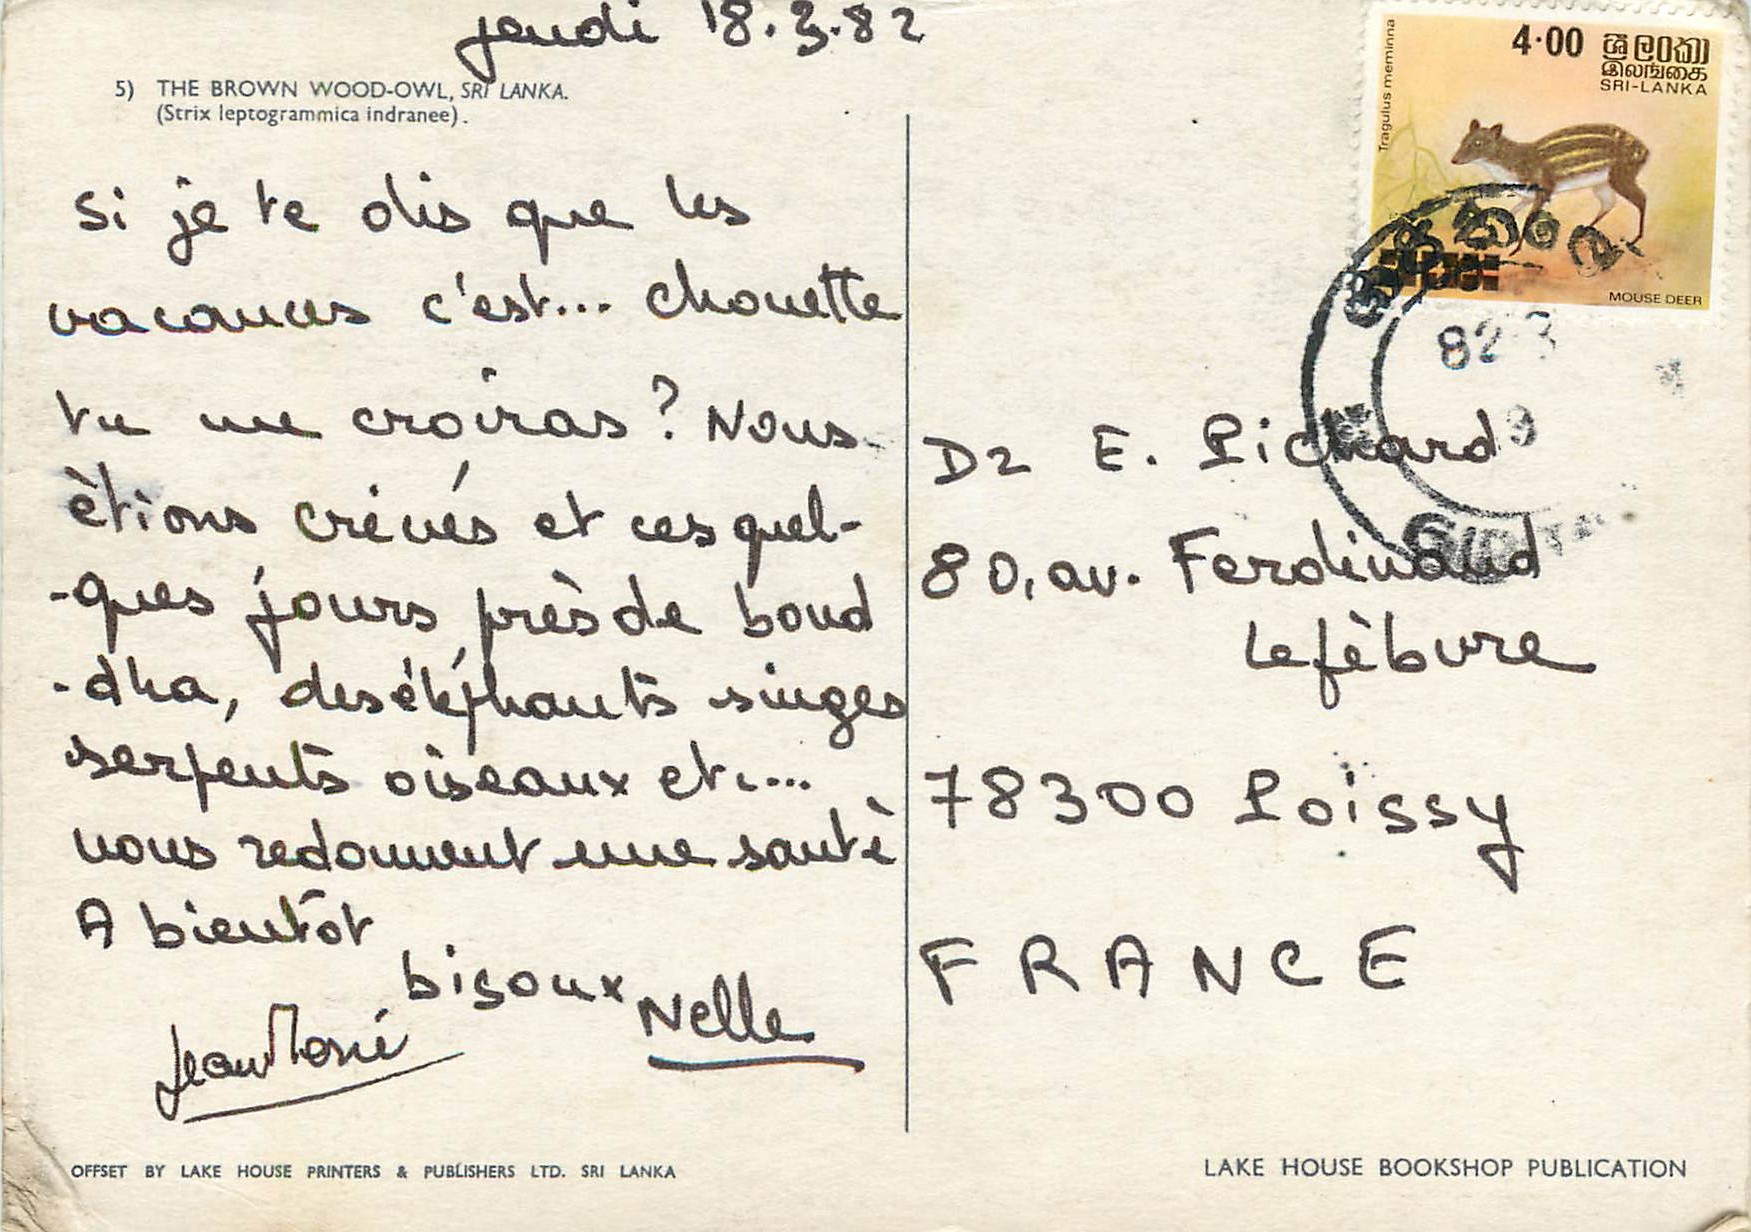 jeudi 18.3.82
5) THE BROWN WOOD-OWL, SRI LANKA.
(Strix leptogrammica indranee).
si je te dis que les
vacances c'est... chouette
tu me croiras? Nous
étions crevés et ces quel-
-ques jours près de boud
-dha, des éléphants singes
serpents oiseaux etc...
nous redonnent une santé
A bientôt
bisoux Nelle
Jean Marie
OFFSET BY LAKE HOUSE PRINTERS & PUBLISHERS LTD. SRI LANKA
4.00 ශ්‍රී ලංකා
இலங்கை
SRI-LANKA
Tragulus meminna
MOUSE DEER
82 3
Dr E. Pichard
80, av. Ferdinand
Lefèbure
78300 Poissy
FRANCE
LAKE HOUSE BOOKSHOP PUBLICATION